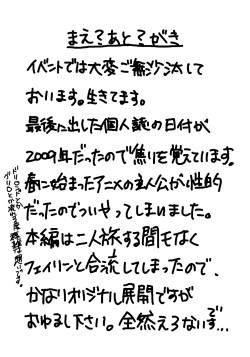 まえであとでがき
イベントでは大変ご無沙汰して
おります。生きてます。
最後に出した個人誌の日付が
2009年だったので焦りを覚えています。
春に始まったアニメの主人公が性的
だったのでついやってしまいました。
本編は二人旅する間もなく
フェイリンと合流してしまったので、
かなりオリジナル展開ですが
おゆるし下さい。全然えろないです…